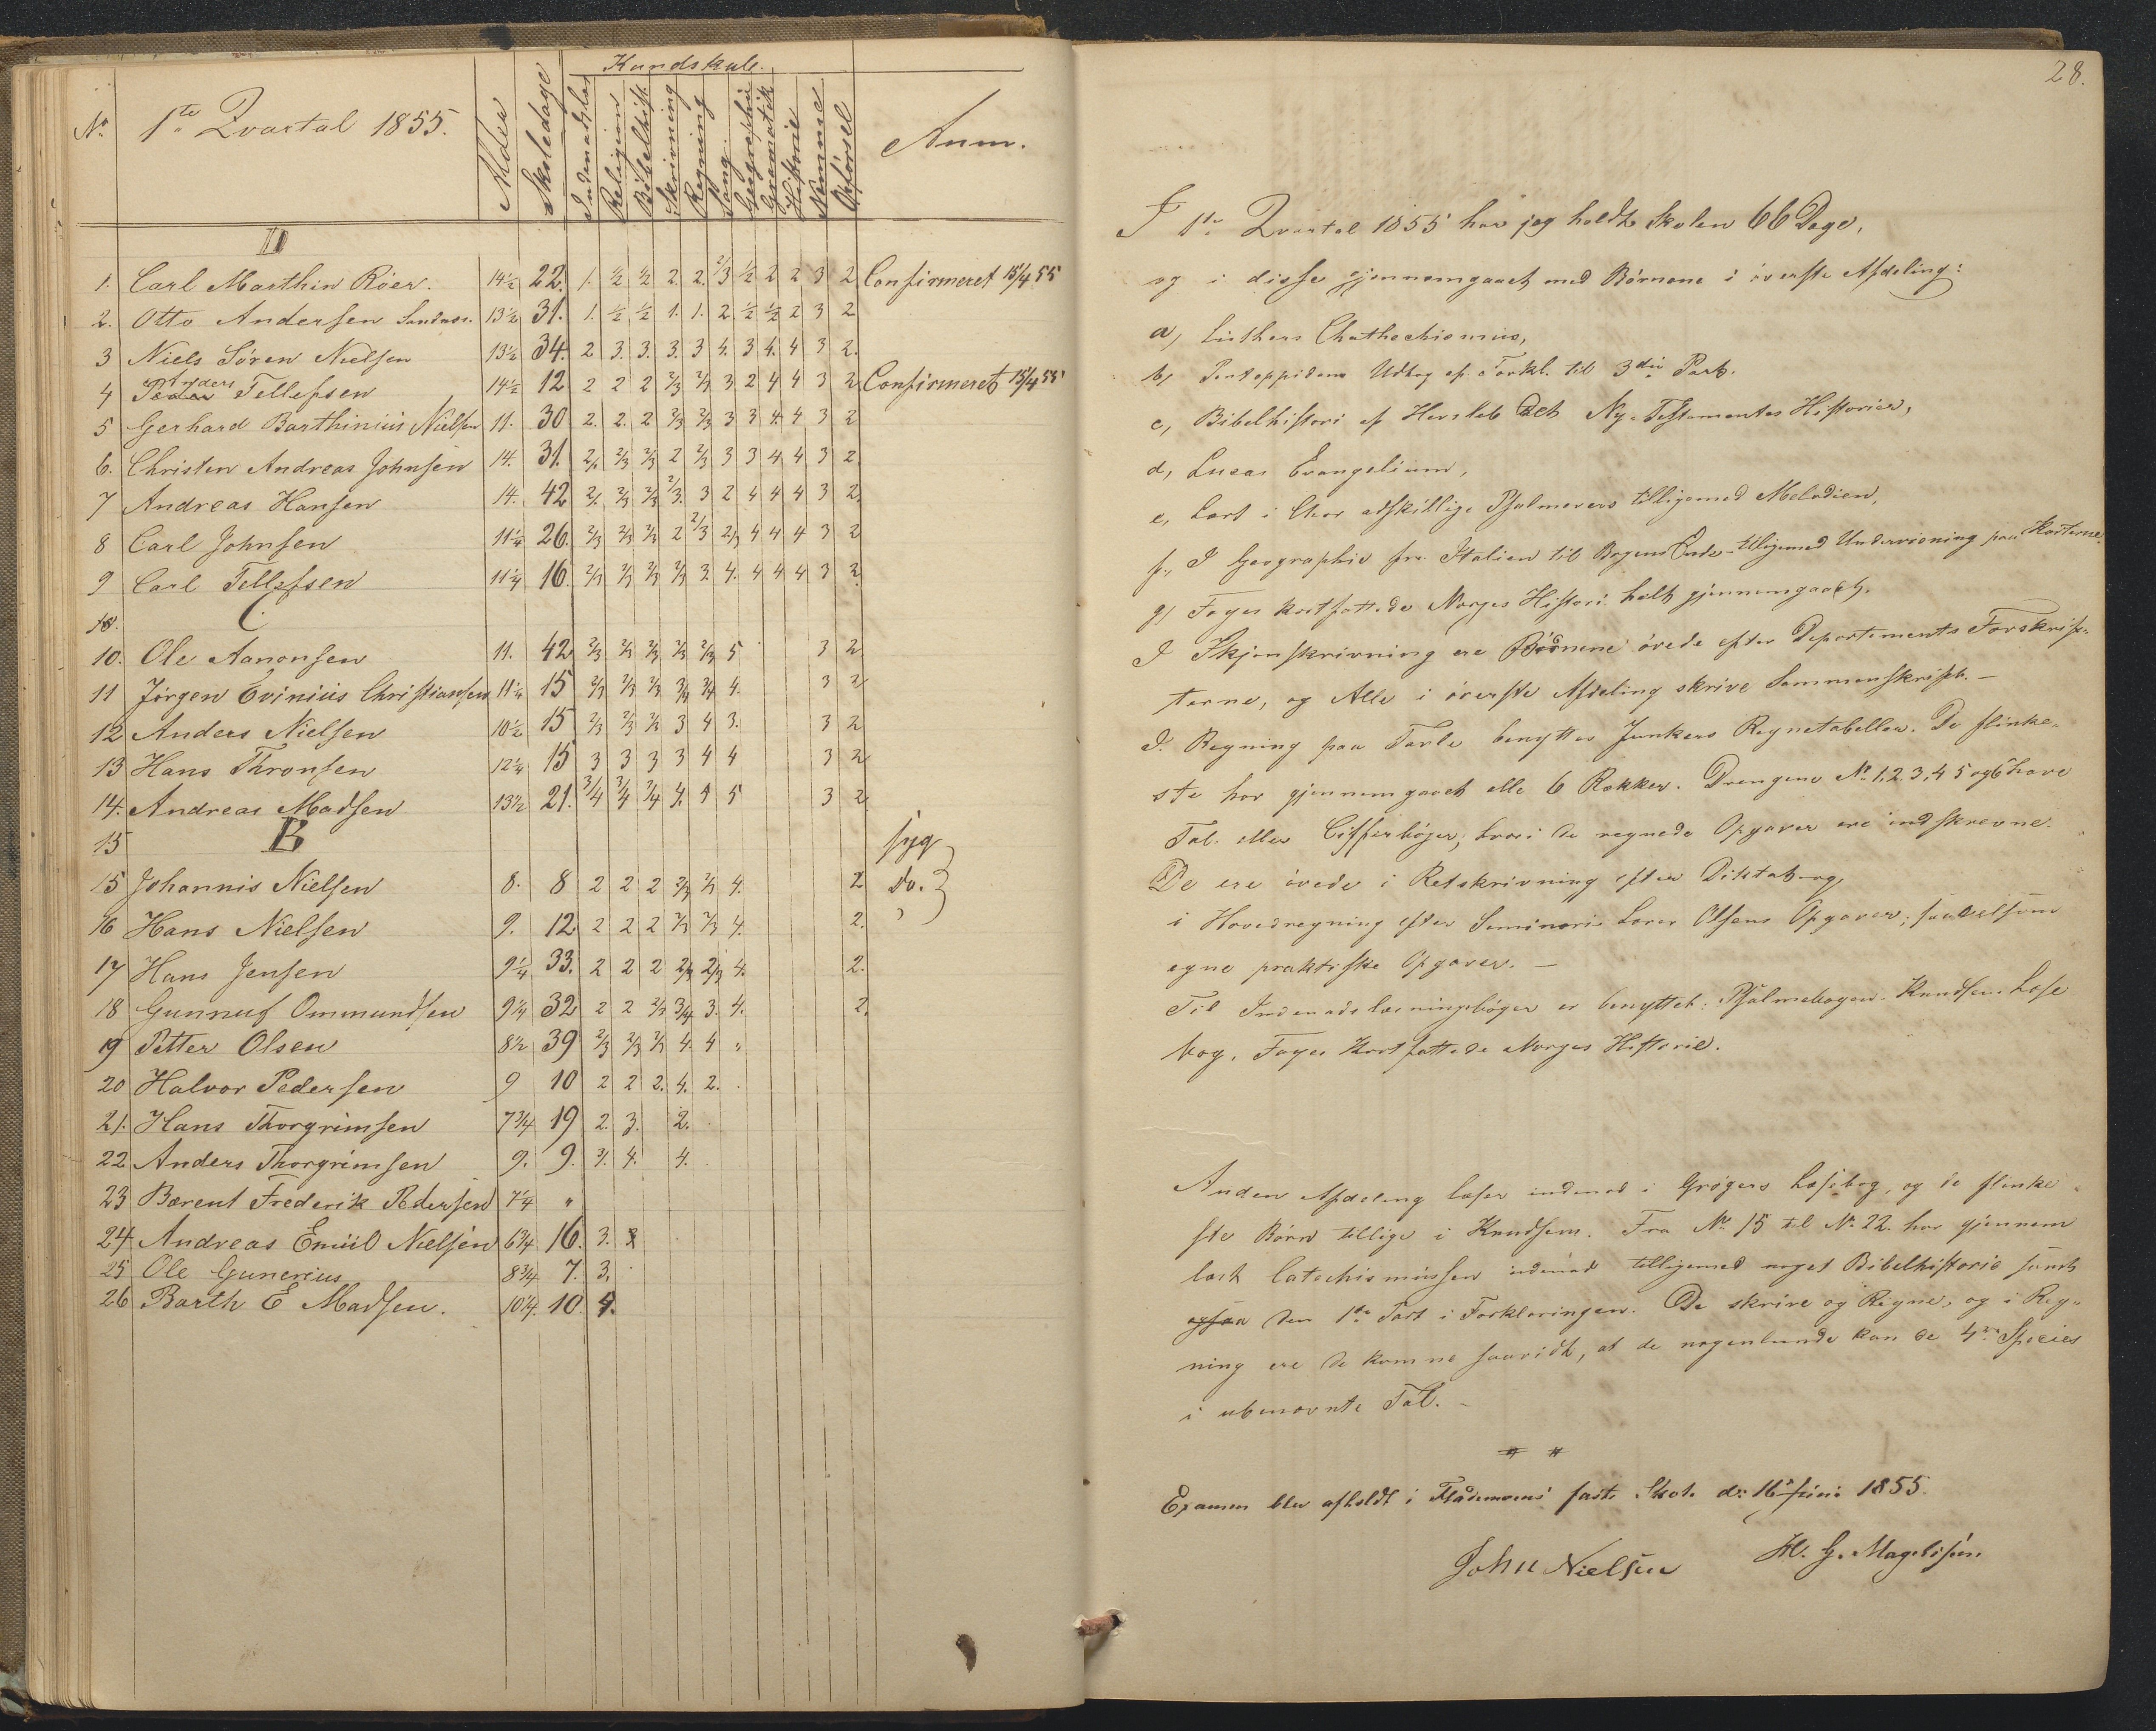 No 1te Qvartal 1855. Alder Skoledage Kundskab. Anm.
Indenadslæs Religion Bibelhist. Skrivning Regning Sang. Geographie Gramatik Historie Nemme Opførsel
D
1. Carl Marthin Röer. 14½ 22. 1. ½ ½ 2. 2. 2/3 ½ 2 2 3 2 Confirmeret 15/4 55
2. Otto Andersen 13½ 31. 1. ½ ½ 1. 1. 2 ½ ½ 2 3 2
3 Niels Sören Nielsen 13½ 34. 2 3. 3. 3. 3 4. 3 4. 4 3 2.
4 Anders Tellefsen 14½ 12 2 2 2 2/3 2/3 3 2 4 4 3 2 Confirmeret 15/4 55
5 Gerhard Barthinius Nielsen 11. 30 2. 2. 2 2/3 2/3 3 3 4. 4 3 2
6. Christen Andreas Johnsen 14. 31. 2/. 2/3 2/3 2 2/3 3 3 4 4 3 2.
7 Andreas Hansen 14. 42 2/. 2/3 2/3 2/3. 3 2 4 4 4 3 2.
8 Carl Johnsen 11¼ 26. 2/3 2/3 2/3 2 2/3 2/3 4 4 4 3 2
9 Carl Tellefsen 11¼ 16. 2/3 2/3 2/3 2/3 3. 4. 4 4 4 3 2.
10. C.
10. Ole Aanonsen 11. 42 2/3 2/3 2/3 2/3 2/3 5 3 2
11 Jörgen Evinius Christiansen 11¼ 15 2/3 2/3 2/3 3/4 3/4 4. 3 2
12 Anders Nielsen 10½ 15 2/3 2/3 2/3 3 4 3. 3 2
13 Hans Thronsen 12¼ 15 3 3 3 3 4 4 3 2
14. Andreas Madsen 13½ 21. 3/4 3/4 3/4 4. 4 5 3 2
15 B syg
15 Johannis Nielsen 8. 8 2 2 2 2/3 2/3 4. 2 do.
16 Hans Nielsen 9. 12 2 2 2 2/3 2/3 4. 2.
17 Hans Jensen 9¼ 33. 2 2 2 2/3 2/3 4. 2.
18 Gunnuf Ommundsen 9¼ 32 2 2 2/3 3/4 3. 4. 2.
19 Petter Olsen 8½ 39 2/3 2/3 2/3 4. 4 "
20 Halvor Pedersen 9 10 2 2 2. 4. 2.
21. Hans Thorgrimsen 7¾ 19 2. 3. 2.
22 Anders Thorgrimsen 9. 9. 3. 4. 4.
23 Bærent Frederik Pedersen 7¼ "
24 Andreas Emiil Nielsen 6¾ 16. 3. 3
25 Ole Gunerius 8¾ 7. 3.
26 Barth E Madsen. 10¼. 10. 4.
28.
I 1te Qvartal 1855 har jeg holdt Skolen 66 Dage,
og i disse gjennemgaaet med Börnene i överste Afdeling:
a, Luthers Chathechismus,
b, Pontoppidans Udtog af Forkl. til 3die Part.
c, Bibelhistori af Hersleb Det Ny-Testamentes Historier,
d, Lucas Evangelium,
e, Lært i Chor adskillige Psalmevers tilligemed Melodien,
f., I Geographie fra Italien til Bogens Ende tilligemed Undervisning paa Karterne.
g, Fayes kortfattede Norges Histori helt gjennemgaaet.
I Skjønskrivning ere Börnene övede efter Departements Forskrif-
terne, og Alle i överste Afdeling skrive Sammenskrift. —
I Regning paa Tavle benyttes Junkers Regnetabeller. De flinke-
ste har gjennemgaaet alle 6 Rækker. Drengene No 1, 2, 3, 4 5 og 6 have
Tal eller Cifferböger, hvori de regnede Opgaver ere indskrevne.
De ere övede i Retskrivning efter Diktat og
i Hovedregning efter Seminari Lærer Olsens Opgaver, saavelsom
egne praktiske Opgaver. —
Til Indenadslæsningsböger er benyttet: Psalmebogen. Knudsens Læse
bog. Fayes Kortfattede Norges Historie.
Anden Afdeling læser indenad i Grögers Læsebog, og de flinke-
ste Börn tillige i Knudsen. Fra No 15 til No 22 har gjennem
læst Catechismussen indenad tilligemed noget Bibelhistorie samt
ogsaa den 1te Part i Forklaringen. De skrive og Regne, og i Reg-
ning ere de komne saavidt, at de nogenlunde kan de 4re Species
i ubenævnte Tal. -
# #
Examen blev afholdt i faste Skole d: 16 Juni 1855.
John Nielsen H. G. Magelssen.